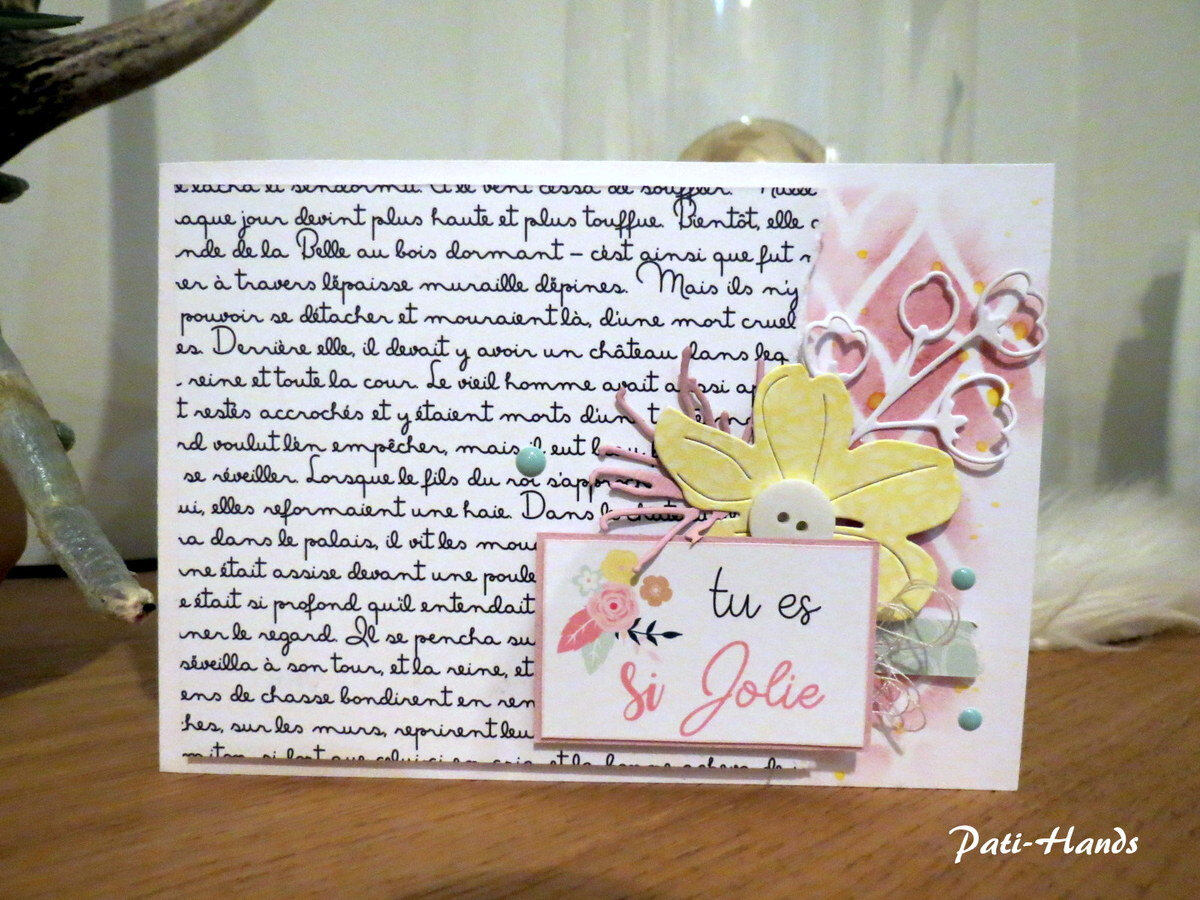 se lâcha et s'endormit. Et le vent cessa de souffler.
aque jour devint plus haute et plus touffue. Bientôt, elle
nde de la Belle au bois dormant – c'est ainsi que fut
er à travers l'épaisse muraille d'épines. Mais ils n'y
pouvoir se détacher et mouraient là, d'une mort cruel
es. Derrière elle, il devait y avoir un château dans leq
reine et toute la cour. Le vieil homme avait aussi ap
t restés accrochés et y étaient morts d'un
rd voulut l'en empêcher, mais il eut b
se réveiller. Lorsque le fils du roi s'app
ui, elles reformaient une haie. Dans le château
a dans le palais, il vit les mou
ne était assise devant une poule
e était si profond qu'il entendait
ner le regard. Il se pencha su
s'éveilla à son tour, et la reine, et
ens de chasse bondirent en rem
hes, sur les murs, reprirent leu
tu es
si Jolie
Pati-Hands